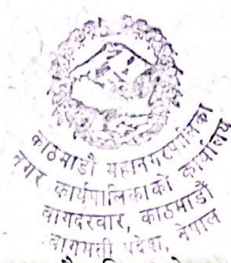 काठमाडौं महानगरपालिका
नगर कार्यपालिकाको कार्यालय
बागदरबार, काठमाडौं
बागमती प्रदेश, नेपाल